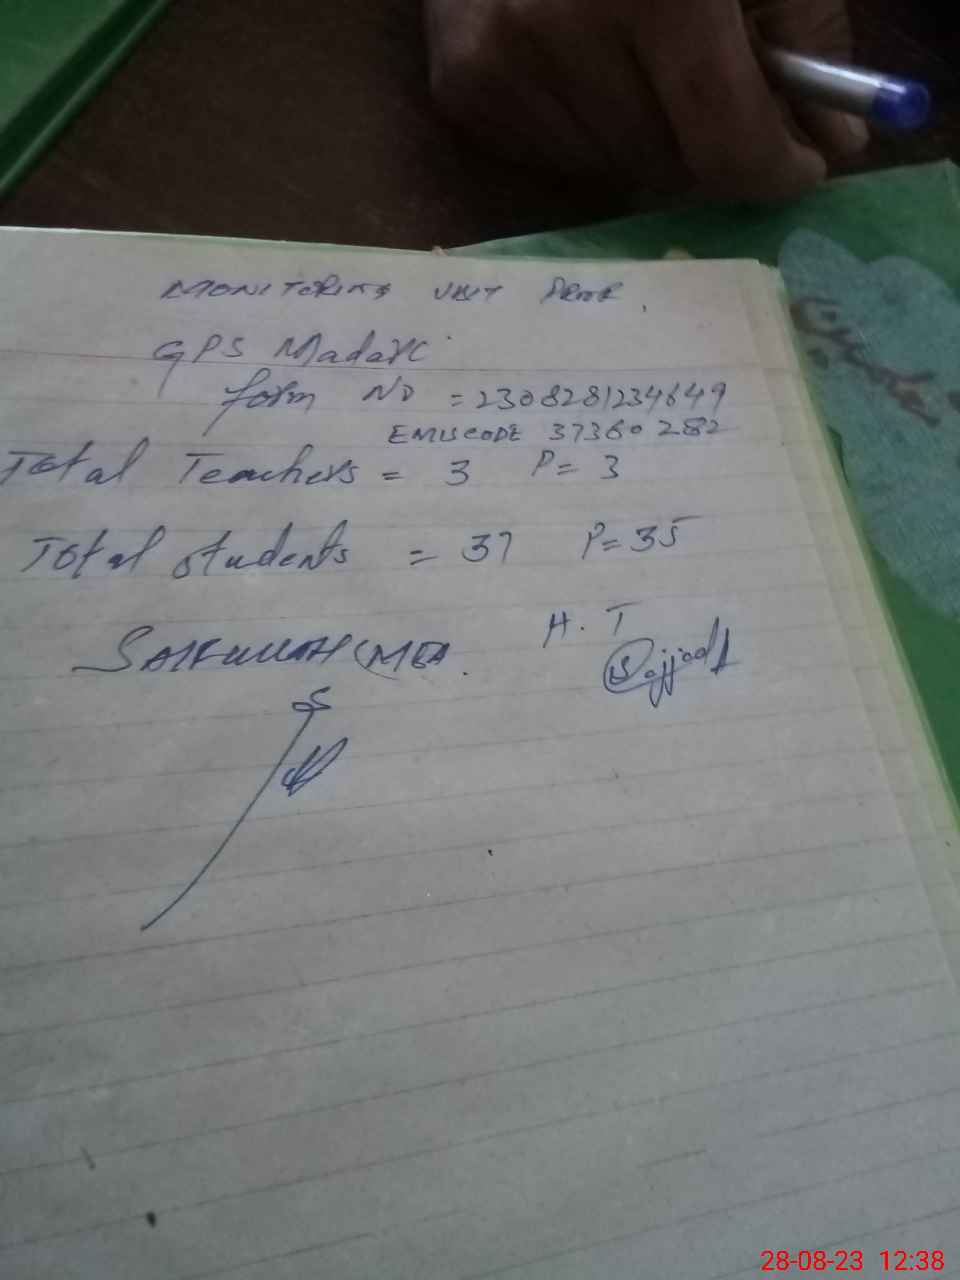 MONITORING UNIT
GPS Madarc
form No = 2308281234649
EMISCODE 37360282
Total Teachers = 3 P= 3
Total students = 37 P= 35
H. T
Sajjad
28-08-23 12:38